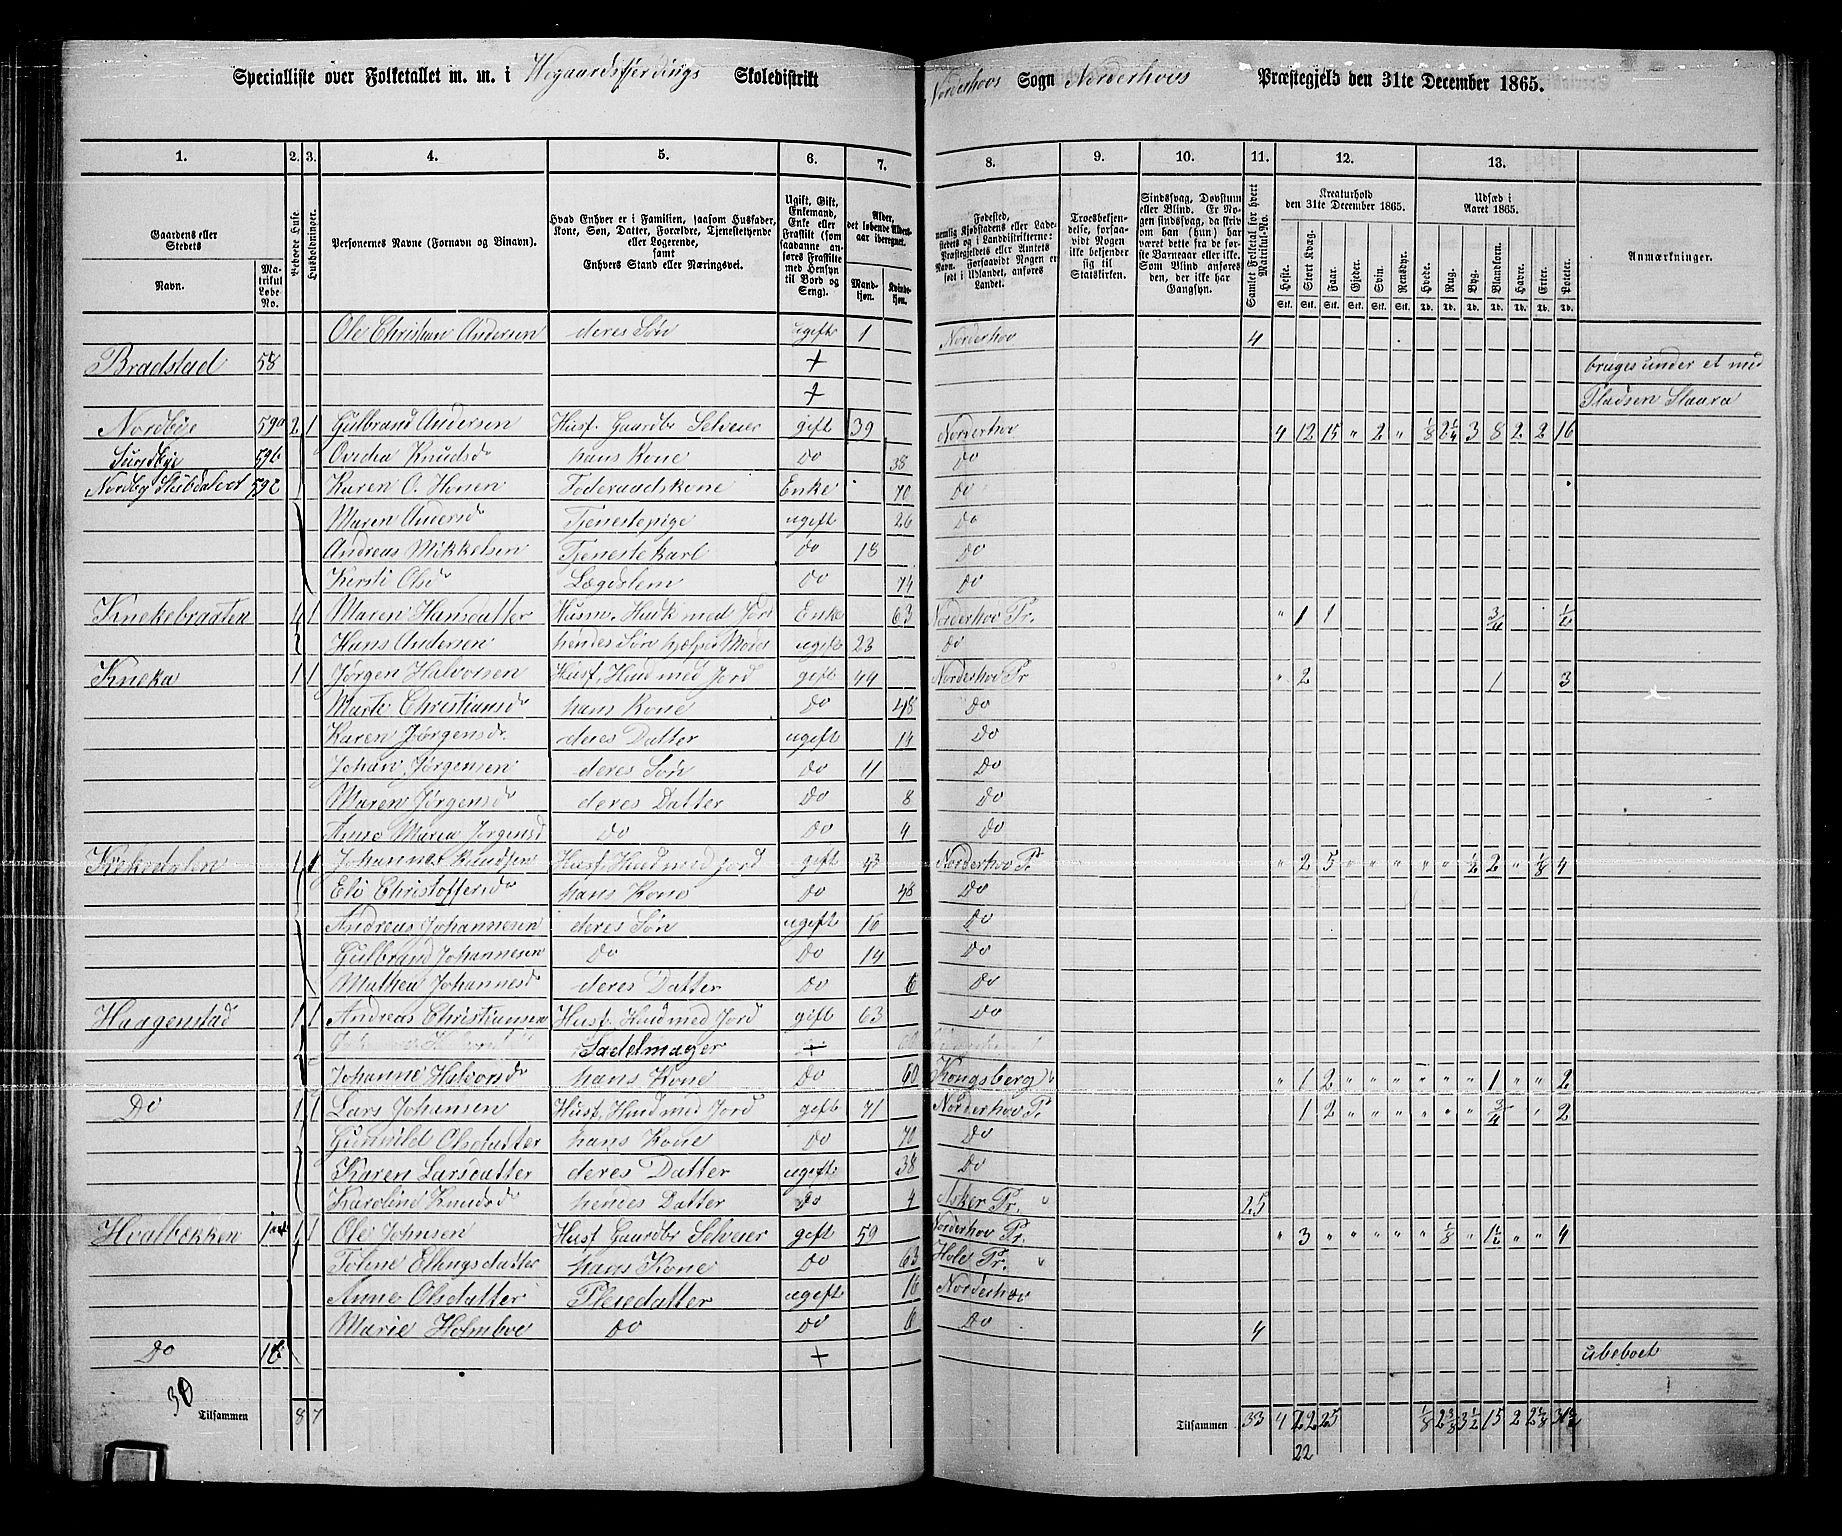 Specialliste over Folketallet m. m. i Skoledistrikt Norderhovs Sogn Norderhovs Præstegjeld den 31te December 1865.
1. 2. 3. 4. 5. 6. 7. 8. 9. 10. 11. 12. 13.
Gaardens eller Stedets
Navn.
Matrikul Løbe-No.
Beboede Huse.
Husholdninger.
Personernes Navne (Fornavn og Binavn).
Hvad Enhver er i Familien, saasom Husfader, Kone, Søn, Datter, Forældre, Tjenestetyende eller Logerende, samt Enhvers Stand eller Næringsvei.
Ugift, Gift, Enkemand, Enke eller Fraskilt (som saadanne anføres Fraskilte med Hensyn til Bord og Seng).
Alder, det løbende Aldersaar iberegnet.
Mandkjøn. Kvindekjøn.
Fødested, nemlig Kjøbstadens eller Ladestedets og i Landdistrikterne: Præstegjeldets eller Amtets Navn. Forsaavidt Nogen er født i Udlandet, anføres Landet.
Troesbekjendelse, forsaavidt Nogen ikke bekjender sig til Statskirken.
Sindssvag, Døvstum eller Blind. Er Nogen sindssvag, da skrives om han (hun) har været dette fra de første Barneaar eller ikke. Som Blind anføres den, der ikke har Gangsyn.
Samlet Folketal for hvert Matrikul-No.
Kreaturhold den 31te December 1865.
Heste. Stort Kvæg. Faar. Gjeder. Svin. Rensdyr.
Udsæd i Aaret 1865.
Hvede. Rug. Byg. Blandkorn. Havre. Erter. Poteter.
Anmærkninger.
Ole Christian Andersen deres Søn ugift 1 Norderhov 4
Bradstad 58 + bruges under et med
+ Pladsen Staara
Nordbye 59a 2 1 Gulbrand Andersen Husf. Gaardbr Selveier gift 39 Norderhov 4 12 15 " 2 " 1/8 2 1/4 3 8 2 2 16
59b Ovidia Knudsd hans Kone Do 38 Do
59c Karen O. Honen Føderaadskone Enke 70 Do
Maren Andersd Tjenestepige ugift 26 Do
Andreas Mikkelsen Tjenestekarl Do 18 Do
Kirsti Olsd Lægdslem Do 74 Do
Knekebraaten 1 Maren Hansdatter Husm. Enke med Jord Enke 63 Norderhov Pr. " 1 1 3/4
Hans Andersen hendes Søn hjælper Moder ugift 23 Do
Kneka 1 1 Jørgen Halvorsen Husf. Husmd med Jord gift 44 Norderhov Pr " 2 1 3
Marte Christiansd hans Kone Do 48 Do
Karen Jørgensd. deres Datter ugift 14 Do
Johan Jørgensen deres Søn Do 11 Do
Maren Jørgensd deres Datter Do 8 Do
Anne Maria Jørgensd Do Do 4 Do
Knekedalen 1 1 Johannes Knudsen Husf. Husmd med Jord gift 43 Norderhov Pr " 2 5 " " " " " 1/2 2 " 1/8 4
Eli Christoffersd hans Kone Do 48 Do
Andreas Johannesen deres Søn ugift 16 Do
Gulbrand Johannesen Do Do 14 Do
Mathea Johannesd deres Datter Do 6 Do
Haagenstad 1 1 Andreas Christiansen Husf. Husmd med Jord gift 63 Do
Sadelmager +
Johanne Halvorsd hans Kone Do 60 Kongsberg " 1 2 " " " " " " 1 " " 2
Do 1 1 Lars Johansen Husf. Husmd med Jord gift 71 Norderhov Pr " 1 2 " " " " " " 3/4 " " 2
Gunnild Olsdatter hans Kone Do 70 Do
Karen Larsdatter deres Datter ugift 38 Do
Karoline Knudsd hendes Datter Do 4 Asker Pr. 25
Hvalbekken 1 1 Ole Johnsen Husf. Gaardbr Selveier gift 59 Norderhov Pr. " 3 " " " " " 1/8 " 1 1/2 " " 4
Tolene Ellingsdatter hans Kone Do 63 Hole Pr.
Anne Olsdatter Pleiedatter ugift 16 Norderhov
Marie Holmboe Do Do Do 4
Do + ubeboet
30
Tilsammen 8 7 Tilsammen 33 4 22 25 1/8 2 3/8 3 1/2 15 2 2 1/8
22